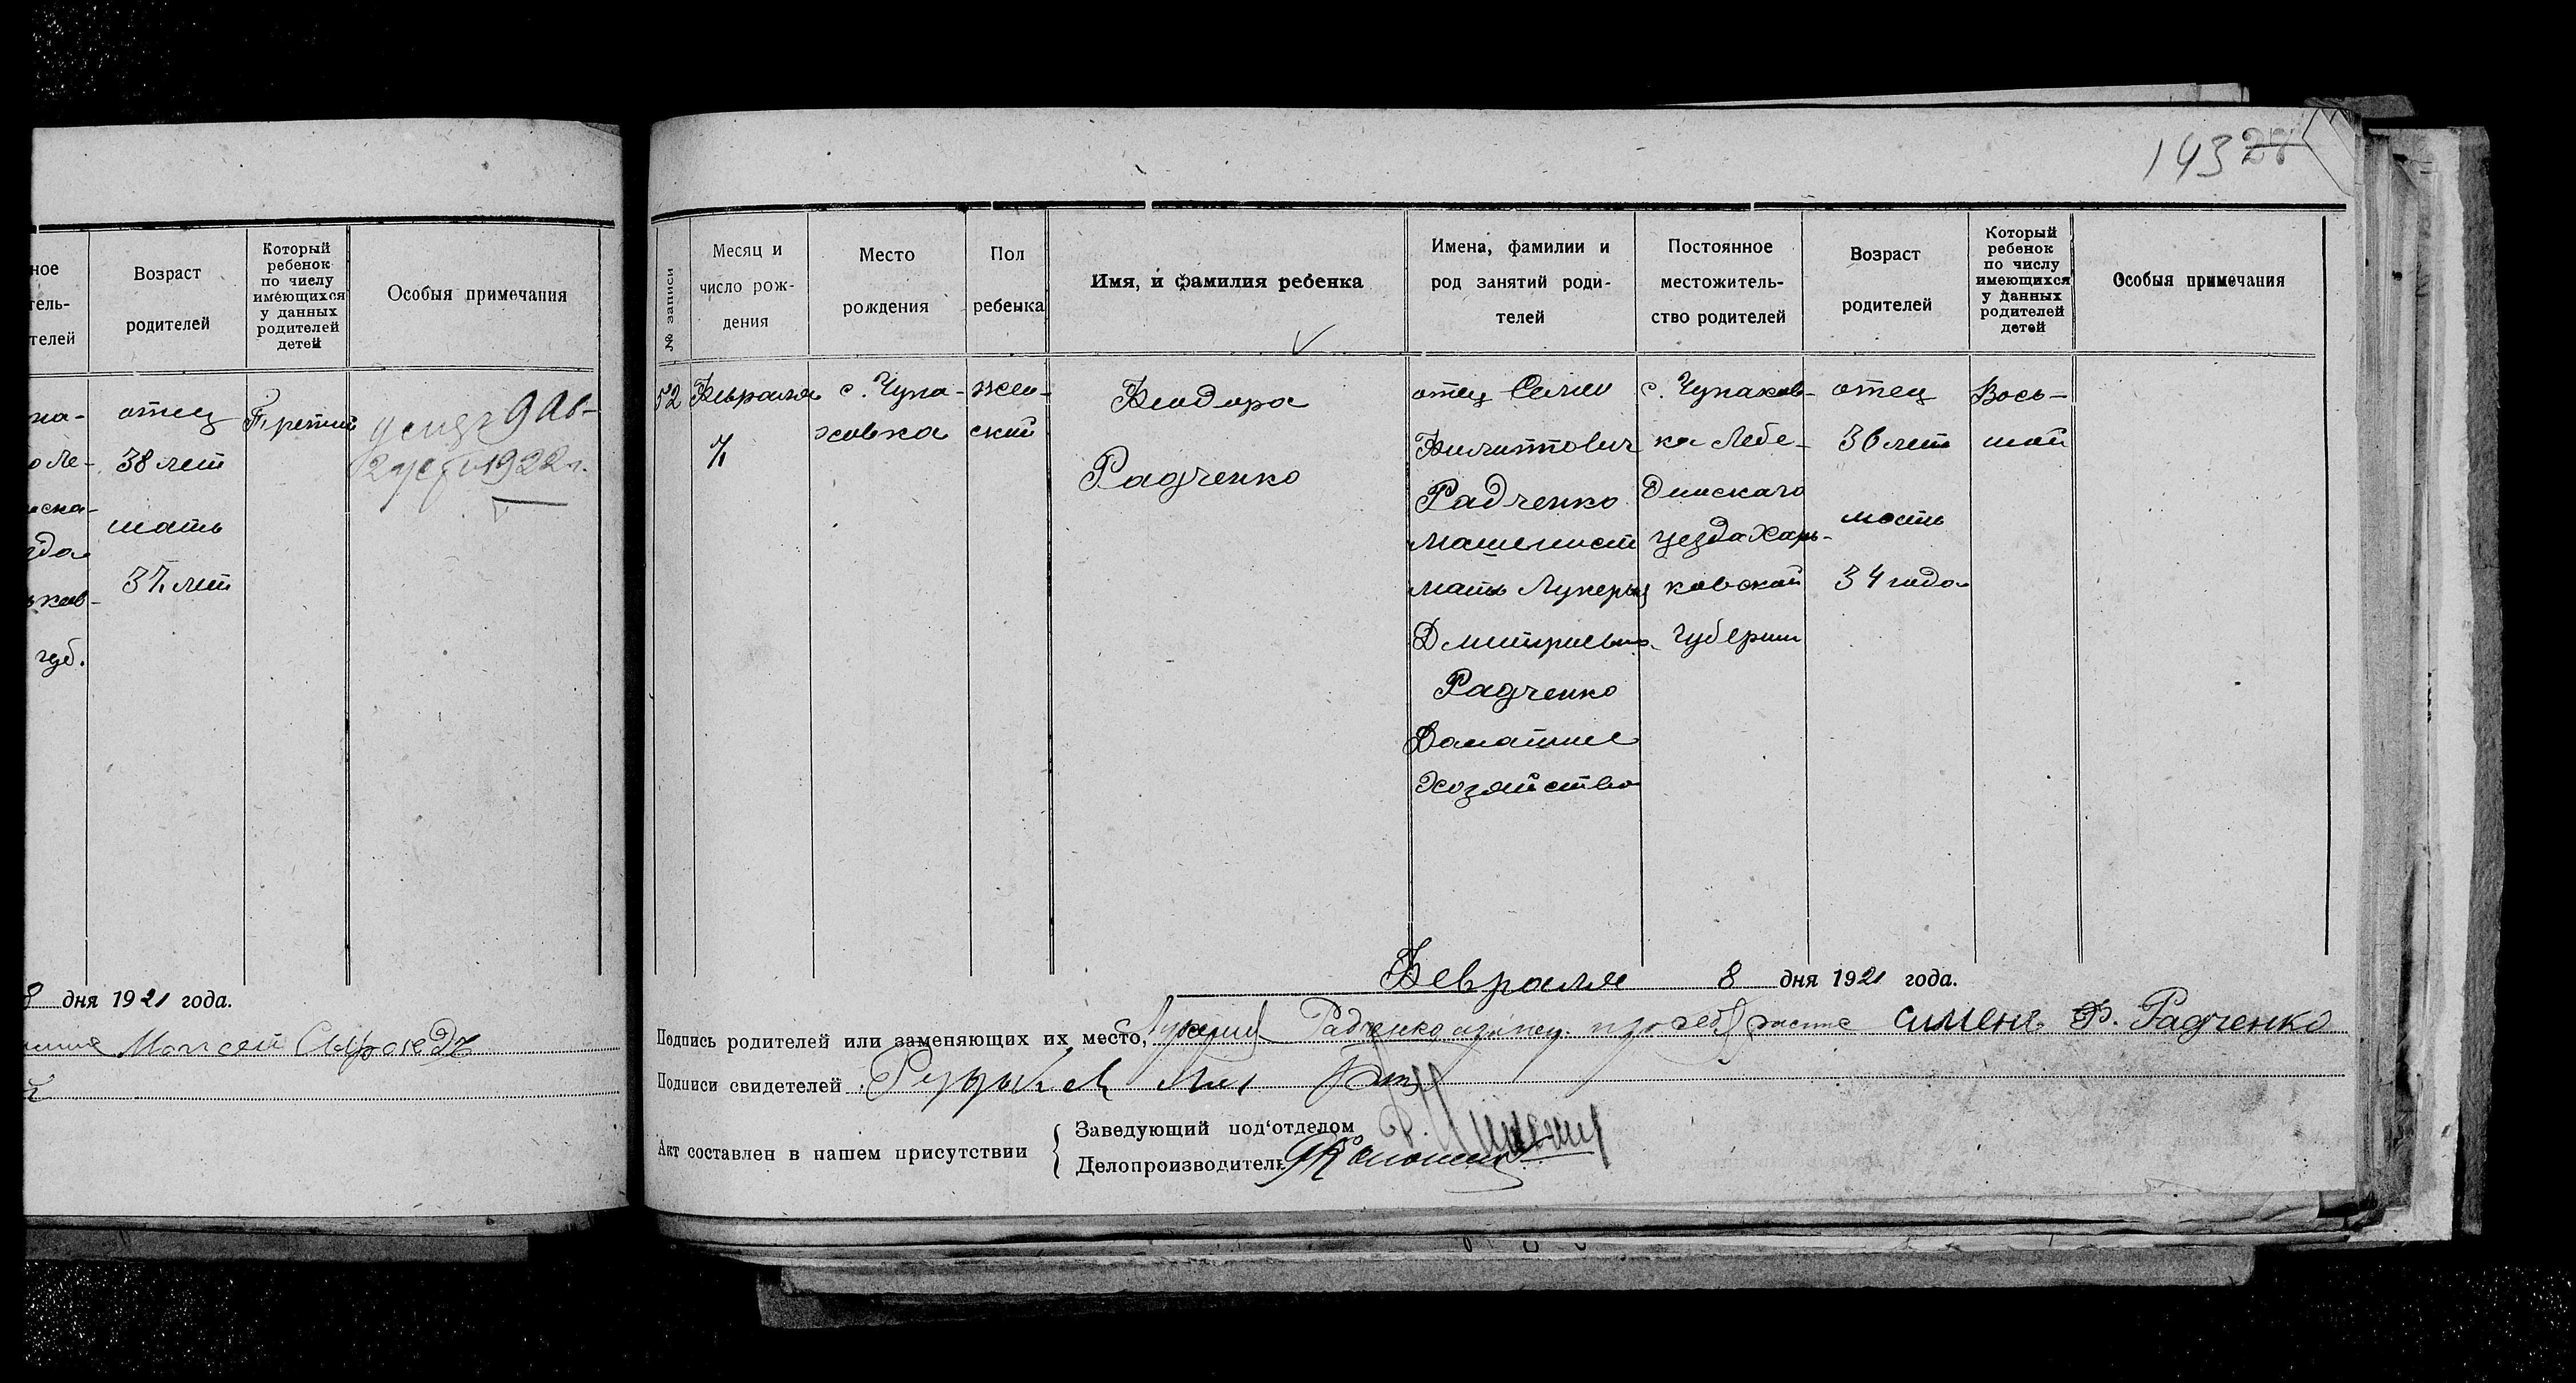 143 27
ное
тель-
телей
Возраст
родителей
Который
ребенок
по числу
имеющихся
у данных
родителей
детей
Особыя примечания
ка-
о Ле-
нска-
зда
ьков-
губ.
отец
38 лет
мать
37 лет
Третий
умер 9 Ав-
густа 1922 г.
8 дня 1921 года.
Моисей Сыроедъ
№ записи
Месяц и
число рож-
дения
Место
рождения
Пол
ребенка
Имя, и фамилия ребенка
Имена, фамилии и
род занятий роди-
телей
Постоянное
местожитель-
ство родителей
Возраст
родителей
Который
ребенок
по числу
имеющихся
у данных
родителей
детей
Особыя примечания
52
Февраля
7
с. Чупа-
ховка
жен-
ский
Феодора
Радченко
отец Семен
Филиппович
Радченко
машинист
мать Лукерья
Дмитриевна
Радченко
Домашнее
Хозяйство
с. Чупахов-
ка Лебе-
динскаго
уезда Харь-
ковской
губернии
отец
36 лет
мать
34 года
Вось-
мой
Февраля 8 дня 1921 года.
Подпись родителей или заменяющих их место, Радченко симене Ф. Радченко
Подписи свидетелей
Акт составлен в нашем присутствии
Заведующий под'отделом
Делопроизводитель